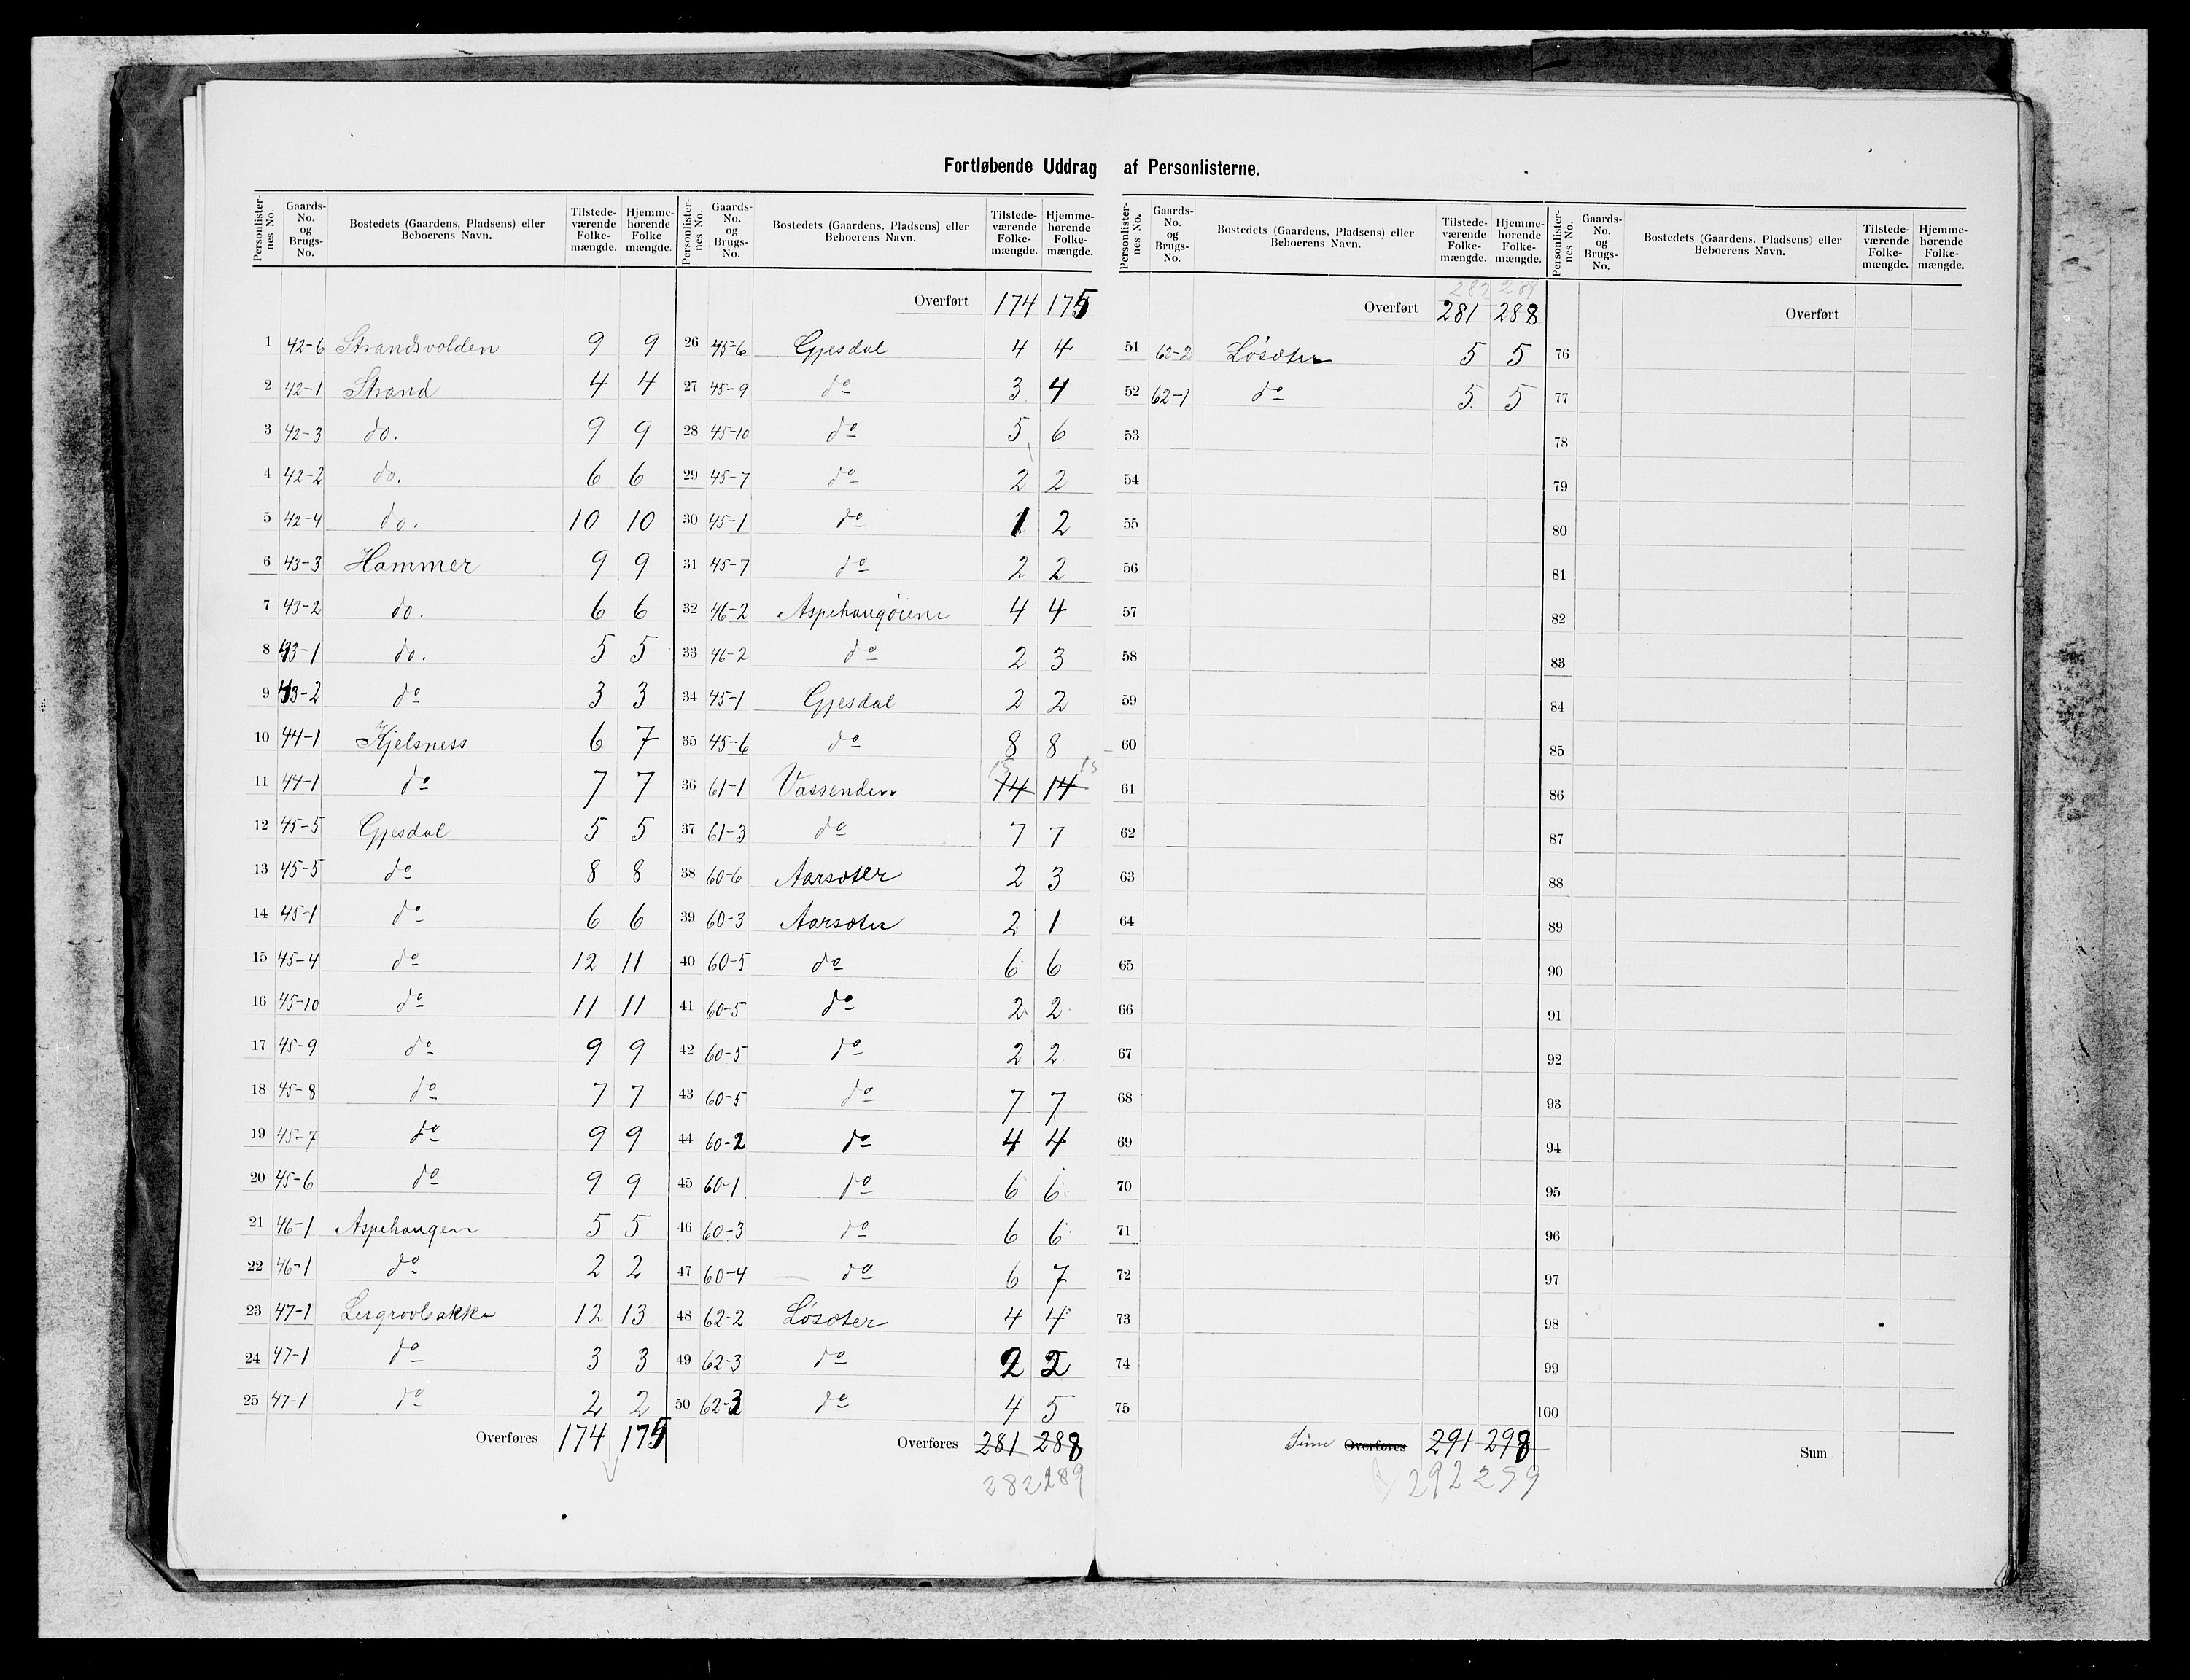 Fortløbende Uddrag af Personlisterne.
Personlisternes No. Gaards-No. og Brugs-No. Bostedets (Gaardens, Pladsens) eller Beboerens Navn. Tilstedeværende Folkemængde. Hjemmehørende Folkemængde.
1 42-6 Strandsvolden 9 9
2 42-1 Strand 4 4
3 42-3 do. 9 9
4 42-2 do. 6 6
5 42-4 do. 10 10
6 43-3 Hammer 9 9
7 43-2 do. 6 6
8 43-1 do. 5 5
9 43-2 do 3 3
10 44-1 Kjelsness 6 7
11 44-1 do 7 7
12 45-5 Gjesdal 5 5
13 45-5 do 8 8
14 45-1 do 6 6
15 45-4 do 12 11
16 45-10 do 11 11
17 45-9 do 9 9
18 45-8 do 7 7
19 45-7 do 9 9
20 45-6 do 9 9
21 46-1 Aspehaugen 5 5
22 46-1 do 2 2
23 47-1 Lergrovbakke 12 13
24 47-1 do 3 3
25 47-1 do 2 2
Overføres 174 175
Personlisternes No. Gaards-No. og Brugs-No. Bostedets (Gaardens, Pladsens) eller Beboerens Navn. Tilstedeværende Folkemængde. Hjemmehørende Folkemængde.
Overført 174 175
26 45-6 Gjesdal 4 4
27 45-9 do 3 4
28 45-10 do 5 6
29 45-7 do 2 2
30 45-1 do 1 2
31 45-7 do 2 2
32 46-2 Aspehaugøien 4 4
33 46-2 do 2 3
34 45-1 Gjesdal 2 2
35 45-6 do 8 8
15 15
36 61-1 Vassenden 14 14
37 61-3 do 7 7
38 60-6 Aarsæter 2 3
39 60-3 Aarsæter 2 1
40 60-5 do 6 6
41 60-5 do 2 2
42 60-5 do 2 2
43 60-5 do 7 7
44 60-2 do 4 4
45 60-1 do 6 6
46 60-3 do 6 6
47 60-4 do 6 7
48 62-2 Løsæter 4 4
49 62-3 do 2 2
50 62-3 do 4 5
Overføres 281 288
282 289
Personlisternes No. Gaards-No. og Brugs-No. Bostedets (Gaardens, Pladsens) eller Beboerens Navn. Tilstedeværende Folkemængde. Hjemmehørende Folkemængde.
282 289
Overført 281 288
51 62-2 Løsæter 5 5
52 62-1 do 5 5
53
54
55
56
57
58
59
60
61
62
63
64
65
66
67
68
69
70
71
72
73
74
75
Sum Overføres 291 298
292 299
Personlisternes No. Gaards-No. og Brugs-No. Bostedets (Gaardens, Pladsens) eller Beboerens Navn. Tilstedeværende Folkemængde. Hjemmehørende Folkemængde.
Overført
76
77
78
79
80
81
82
83
84
85
86
87
88
89
90
91
92
93
94
95
96
97
98
99
100
Sum